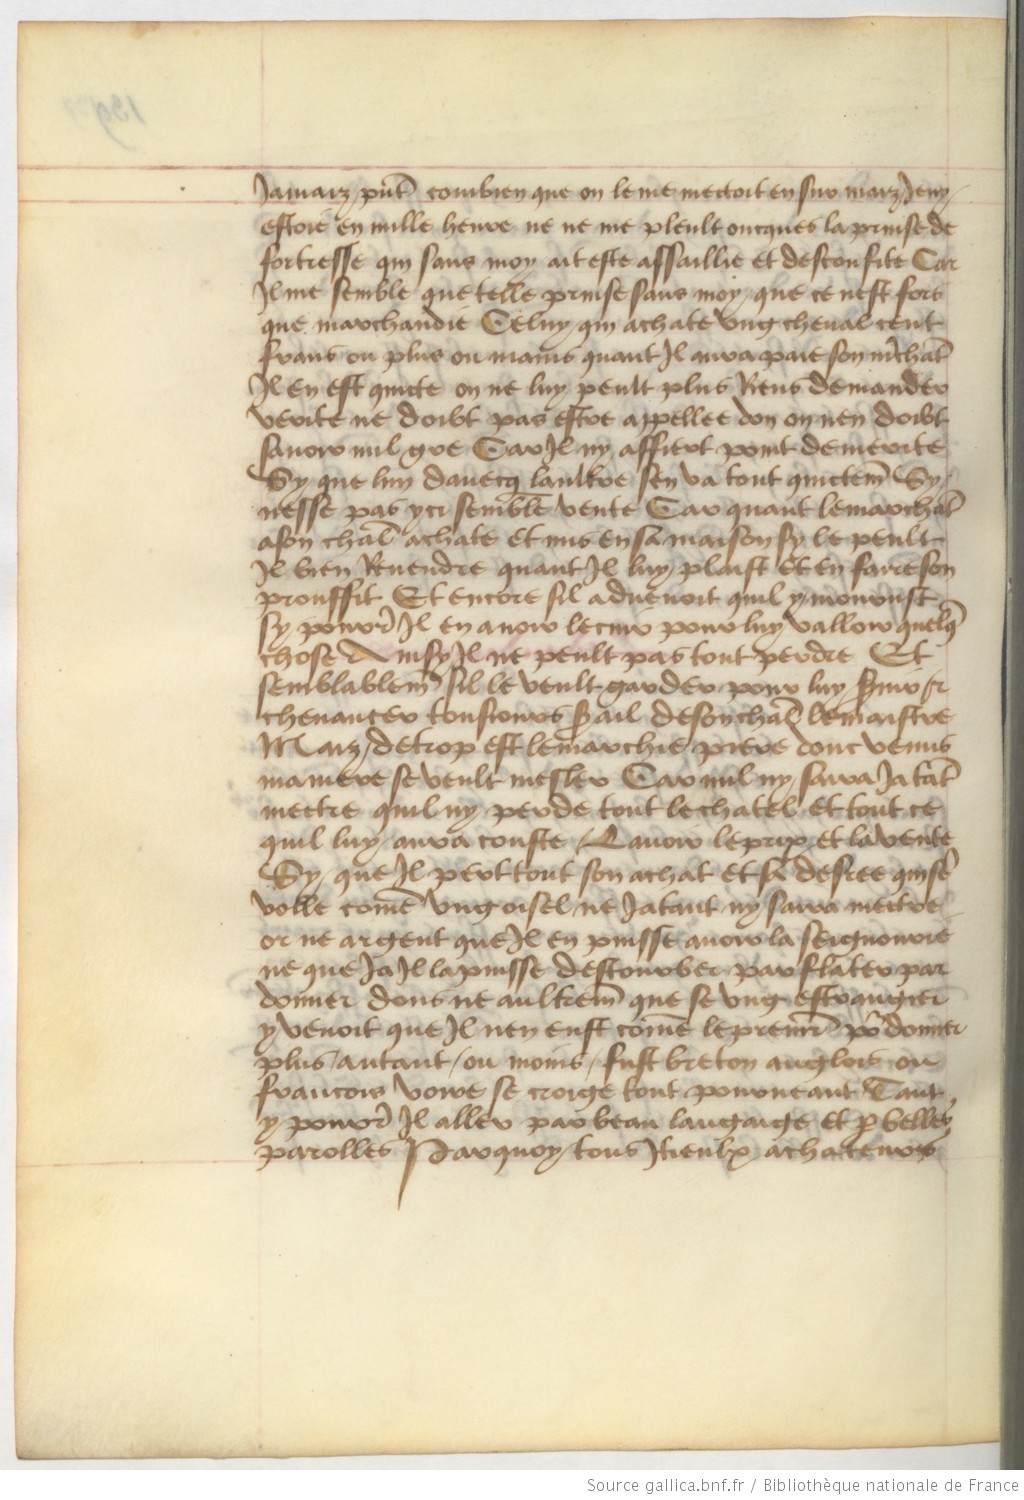 Jamaiz prist combien que on le me mectoit en sur maiz Jeny
estoie en mille heure ne ne me pleult oncques la prinse de
fortresse qui sans moy ait este assaillie et desconfite Car
Il me semble que telle prinse sans moy que ce nest fors
que marchandie Celuy qui achate ung cheval cent
frans ou plus ou mains quant Il aura paie son mchāt
Il en est quicte on ne luy peult plus Riens demander
verite ne doibt pas estre appellee don on nen doibt
savoir nul gre Car Il ny affiert point de merite
Sy que luy davecq laultre sen va tout quictem̄ Sy
nesse pas ycy semblē vente Car quant le marchāt
a son chāl achate et mis en sa maison sy le peult
Il bien Revendre quant Il luy plaist et en faire son
prouffit Et encore sil advenoit quil y mourust
sy pourā Il en avoir le cuir pour luy valloir quelq̄
chose Ainsy Il ne peult pas tout perdre Et
semblablem̄ sil le veult garder pour luy servir et
chevaucer tousiours serail de son chāl le maistre
Maiz de trop est le marchie piere donc venus
maniere se veult mesler Car nul ny sara Ja tāt
mectre quil ny perde tout le chatel et tout ce
quil luy aura couste Lavoir le prix et la vente
Sy que Il pert tout son achat et sa desree quise
volle comē ung oisel ne Ja tant ny sara mectre
or ne argent que Il en puisse avoir la seignourie
ne que Ja Il la puisse destourber par flater par
donner dons ne aultrem̄ que se ung estrangier
y venoit que Il nen eust comē le premier po̅ donner
plus autant ou moins fust breton anglois ou
francois voire se croige tout pour neant Tant
y pourā Il aller par beau langaige et p̄ belles
parolles Parquoy tous Itieulx achacteurs